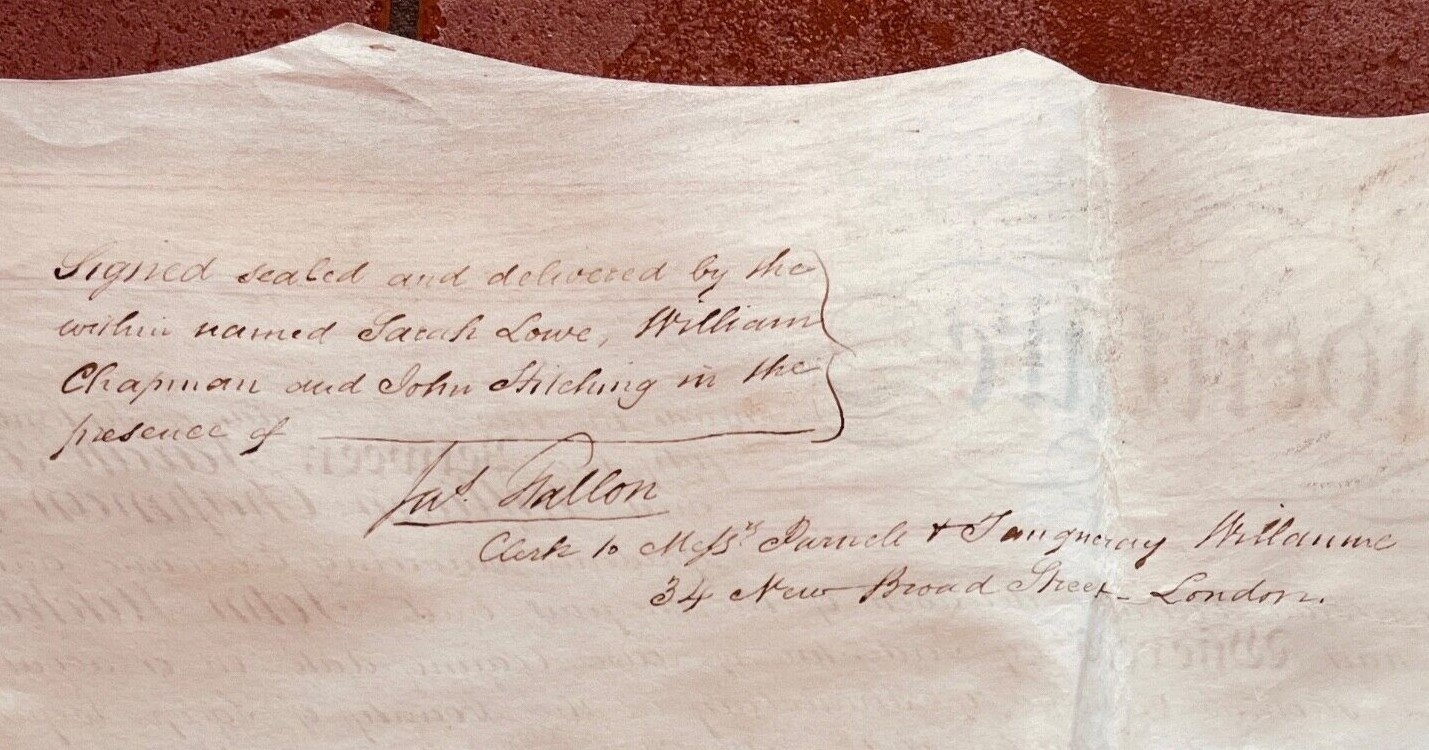 Signed sealed and delivered by the
within named Sarah Lowe, William
Chapman and John Stitching in the
presence of
Jas. Fallon
Clerk to Messrs Parnele & Tanqueray Willaume
34 New Broad Street - London.